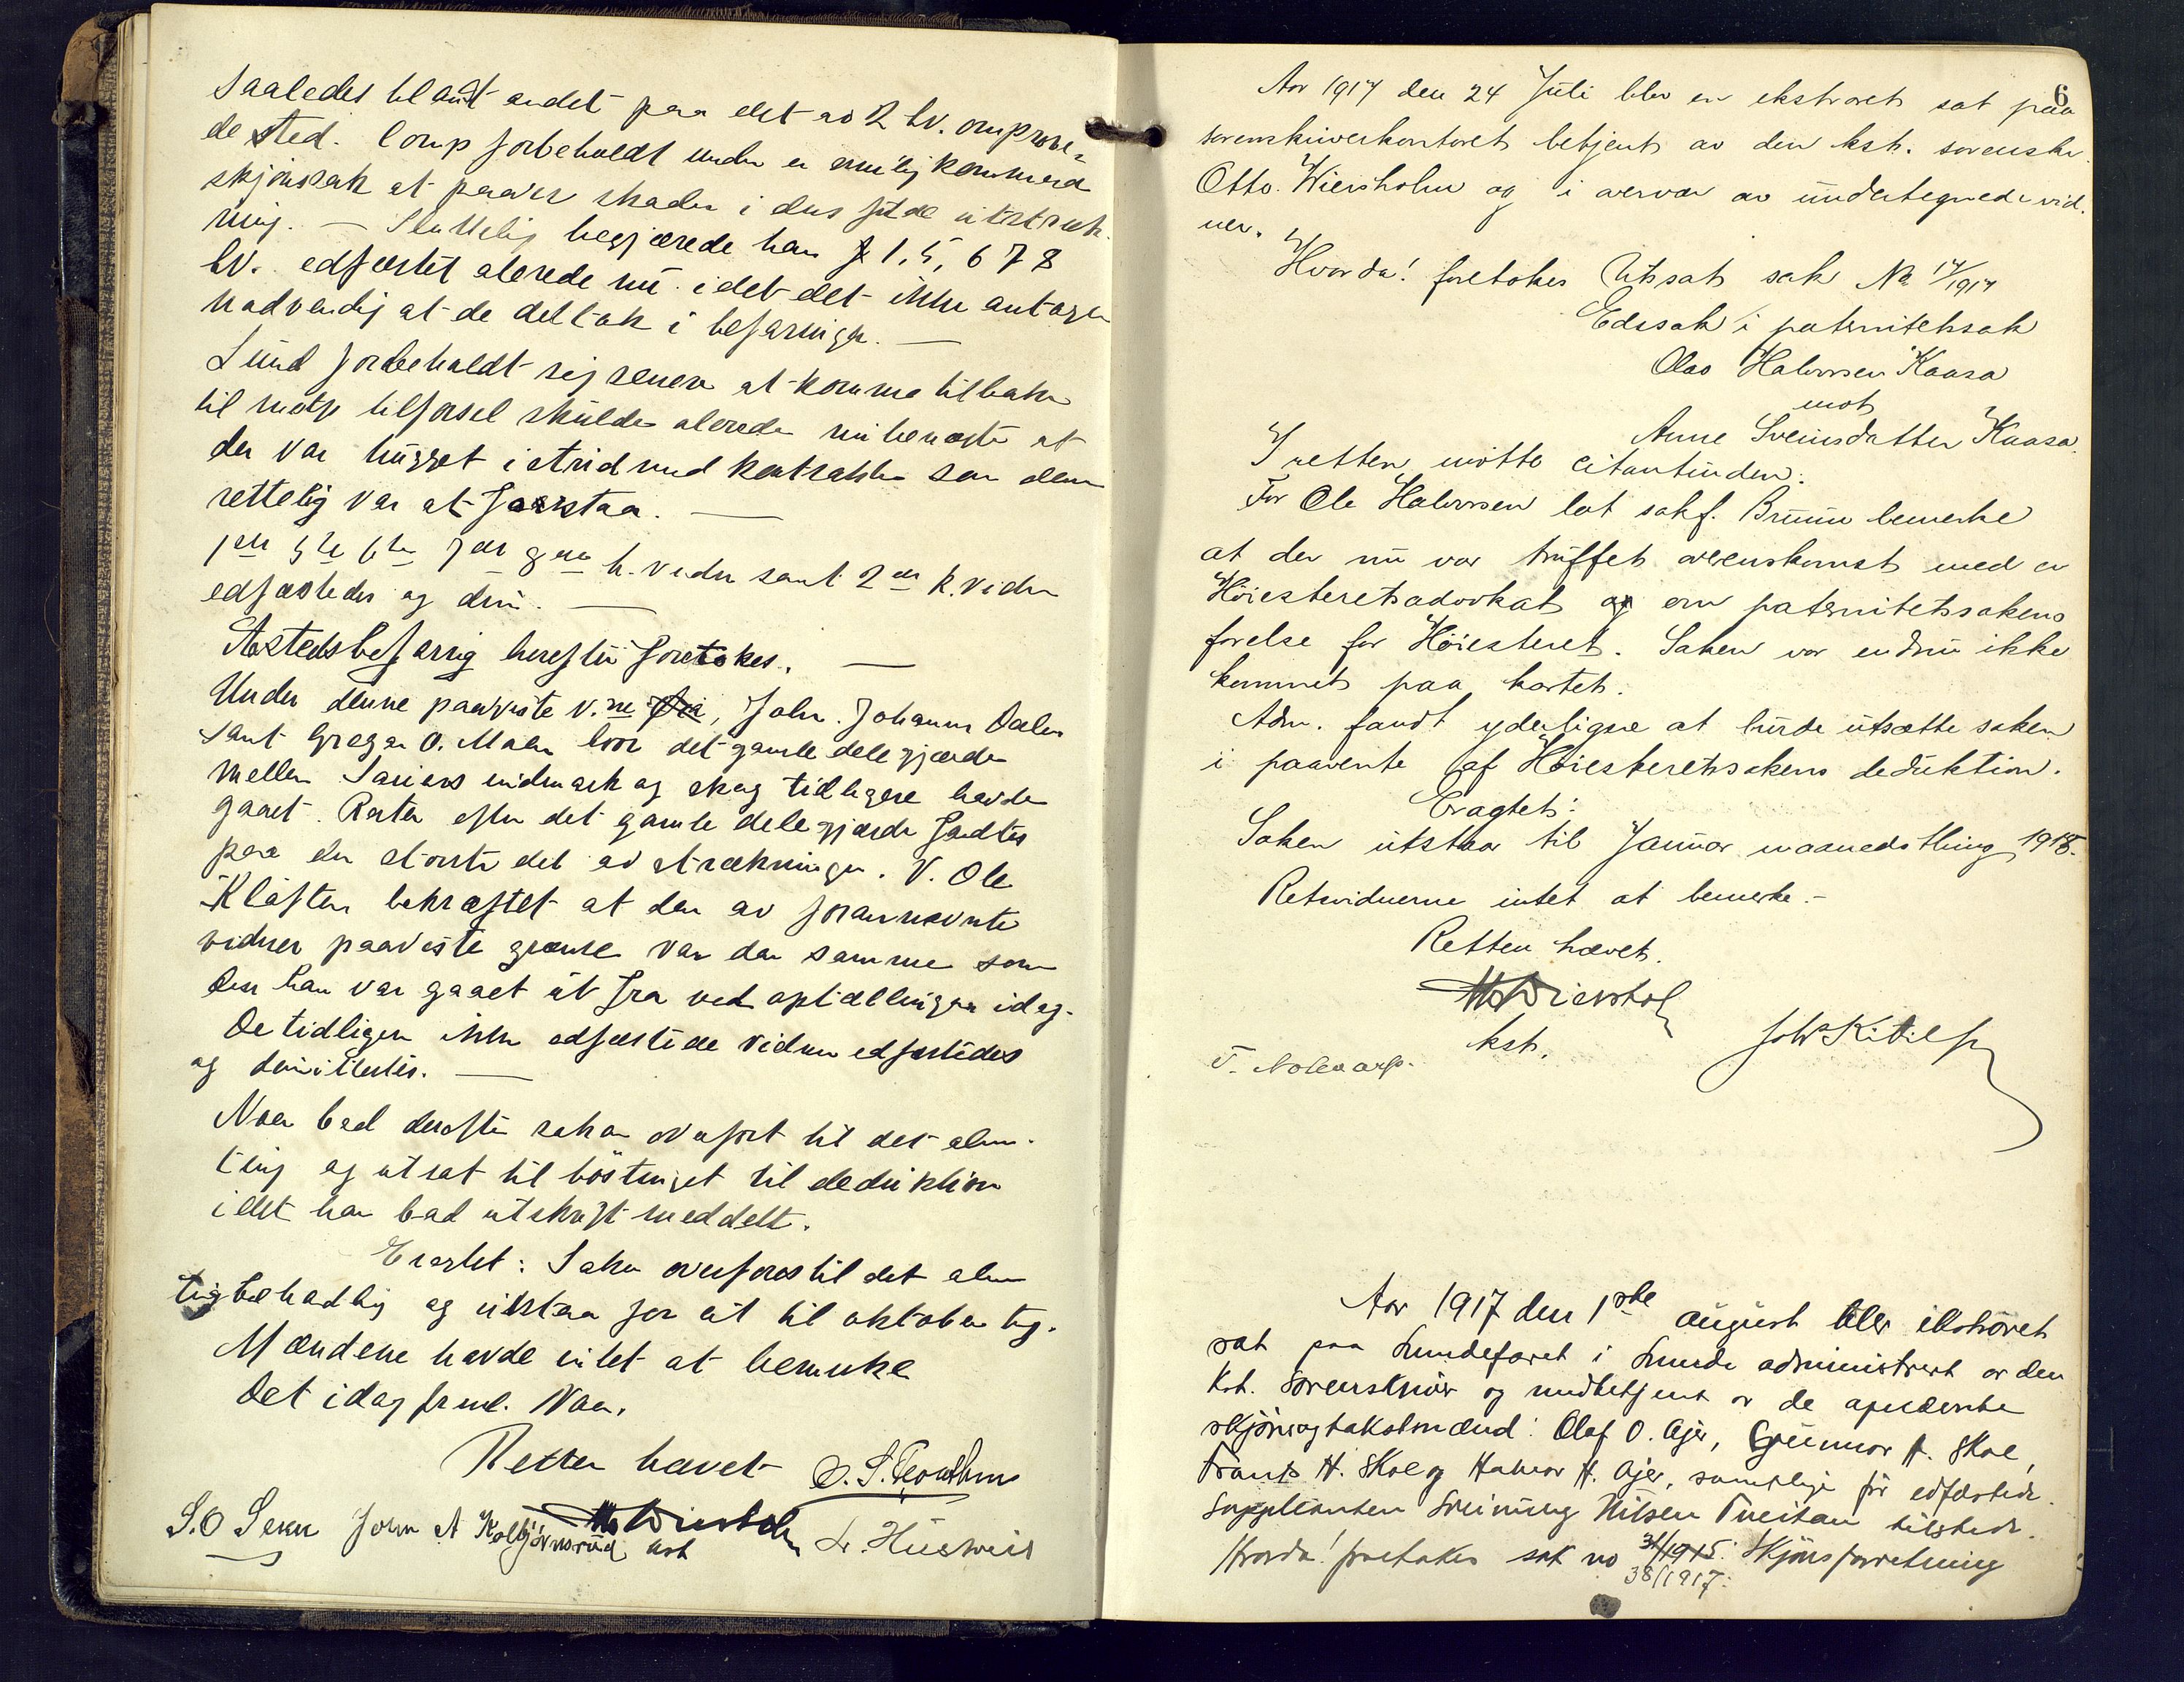 saaledes blandt andet paa det av 2 hv. omprove-
de sted. Comp forbeholdt under en  kommende
skjønssak at paavise skaden i dens fulde utstræk-
ning. — Sluttelig begjærede han § 1, 5, 6 7 8
hv. edfæstet alerede nu idet det ikke antages
nødvendig at de deltok i befaringen. —
Lund forbeholdt sig senere at komme tilbake
til motp tilførsel skulde alerede nu benegte at
der var hugget i strid med kontrakten som den
rettelig var at forstaa. —
1ste 5te 6te 7de 8de h. vidn samt 2det k. vidn
edfæstedes og dim. —
Aastedsbefaring herefter foretokes. —
Under denne paaviste v.ne John Johannes Dalen
samt Gregar O. Moen hvor det gamle delegjærde
mellem indmark og skog tidligere havde
gaaet. Rester efter det gamle delegjærde fandtes
paa den største del av strækningen. V. Ole
Kløften bekræftet at den av forannevnte
vidner paaviste grænse var den samme som
den han var gaaet ut fra ved optællingen idag.
De tidligere ikke edfæstede vidner edfæstedes
og dimitertes. —
Noer bad derefter saken overført til det alm.
ting og utsat til høstinget til deduktion
idet han bad utskrift meddelt.
Eragtet: Saken overføres til det alm
tingbehandling og utstaar for at til oktober tg.
Mændene havde intet at bemerke
Det idag frml. Noer.
Retten hævet
S.O John A Kolbjørnsrud kst
6
Aar 1917 den 24 Juli blev en ekstraret sat paa
sorenskriverkontoret betjent av den kst. sorenskr.
Otto. Wiersholm og i nærvær av undertegnede vid.
ner.
Hvorda! foretokes Utsat sak No 17/1917
Edssak i paternitetssak
Olav Halvorsen Kaasa
mot
Anne Sveinsdatter Kaasa.
I retten møtte citantinden.
For Ole Halvorsen lot sakf. Bruun bemerke
at der nu var truffet overenskomst med en
Høiesteretsadvokat om paternitetssakens
førelse for Høiesteret. Saken var endnu ikke
kommet paa kartet.
Adm. fandt yderligere at burde utsætte saken
i paavente af Høiesteretssakens deduktion.
Eragtet:
Saken utstaar til Januar maanedsthing 1918.
Retsvidnerne intet at bemerke. -
Retten hævet.
Wiersholm
kst.
T. Nolkaarp. Joh Kittilsen
Aar 1917 den 1ste august blev ekstraret
sat paa Lundefaret i Lunde administrert av den
kst. sorenskriver og medbetjent av de opnævnte
skjønsogtakstmænd: Olaf O. Ajer, Gunnar H. Skoe,
Frants H. Skoe og Halvor H. Ajer, samtlige før edfæstede.
Supplianten Sveinung Nilsen Tveitan tilstede.
Hvorda! foretokes sak no 31/1915. Skjønsforretning
38/1917.